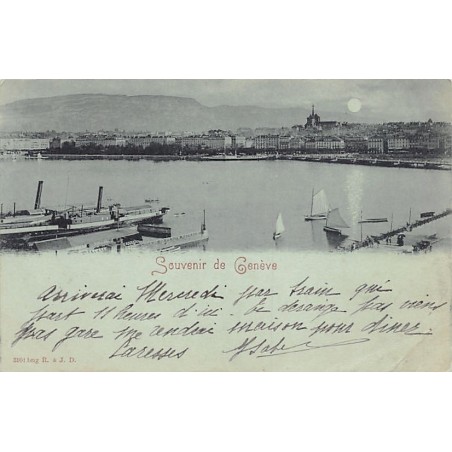 Souvenir de Genève
Arriverai Mercredi par train qui
part 11 heures d'ici. Ne derange pas viens
pas gare me rendrai maison pour diner.
Caresses
R. & J. D.